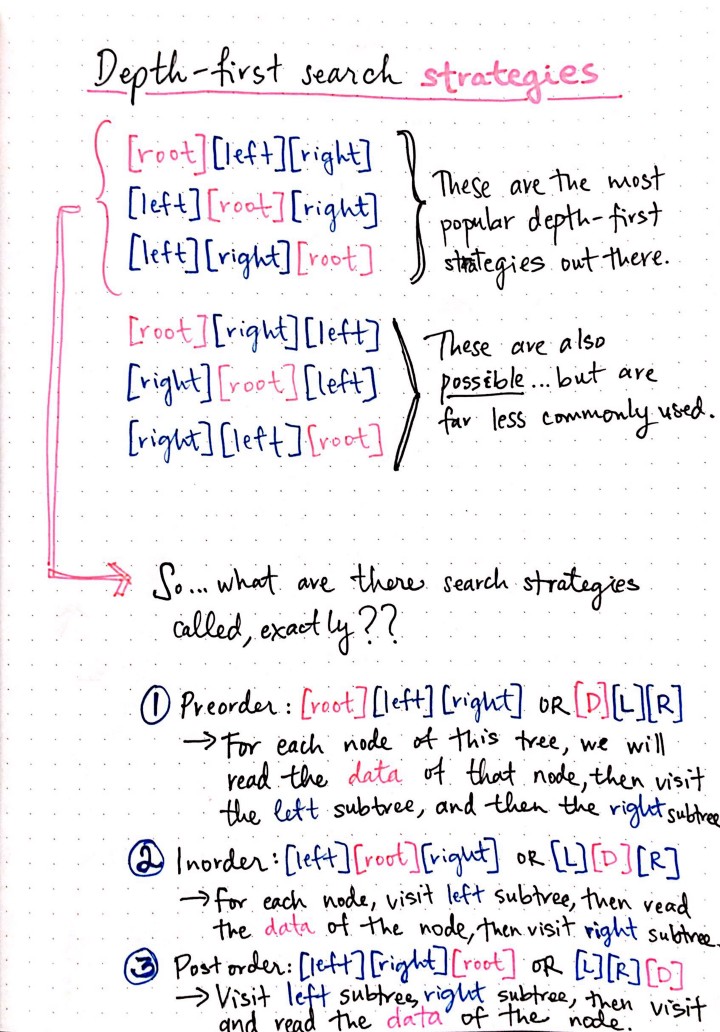 Depth-first search strategies
[root][left][right]
[left][root][right]
[left][right][root]
These are the most
popular depth-first
strategies out there.
[root][right][left]
[right][root][left]
[right][left][root]
These are also
possible...but are
far less commonly used.
So...what are there search strategies
called, exactly??
① Preorder: [root][left][right] OR [D][L][R]
→ For each node of this tree, we will
read the data of that node, then visit
the left subtree, and then the right subtree
② Inorder: [left][root][right] OR [L][D][R]
→ For each node, visit left subtree, then read
the data of the node, then visit right subtree.
③ Postorder: [left][right][root] OR [L][R][D]
→ Visit left subtree, right subtree, then visit
and read the data of the node.